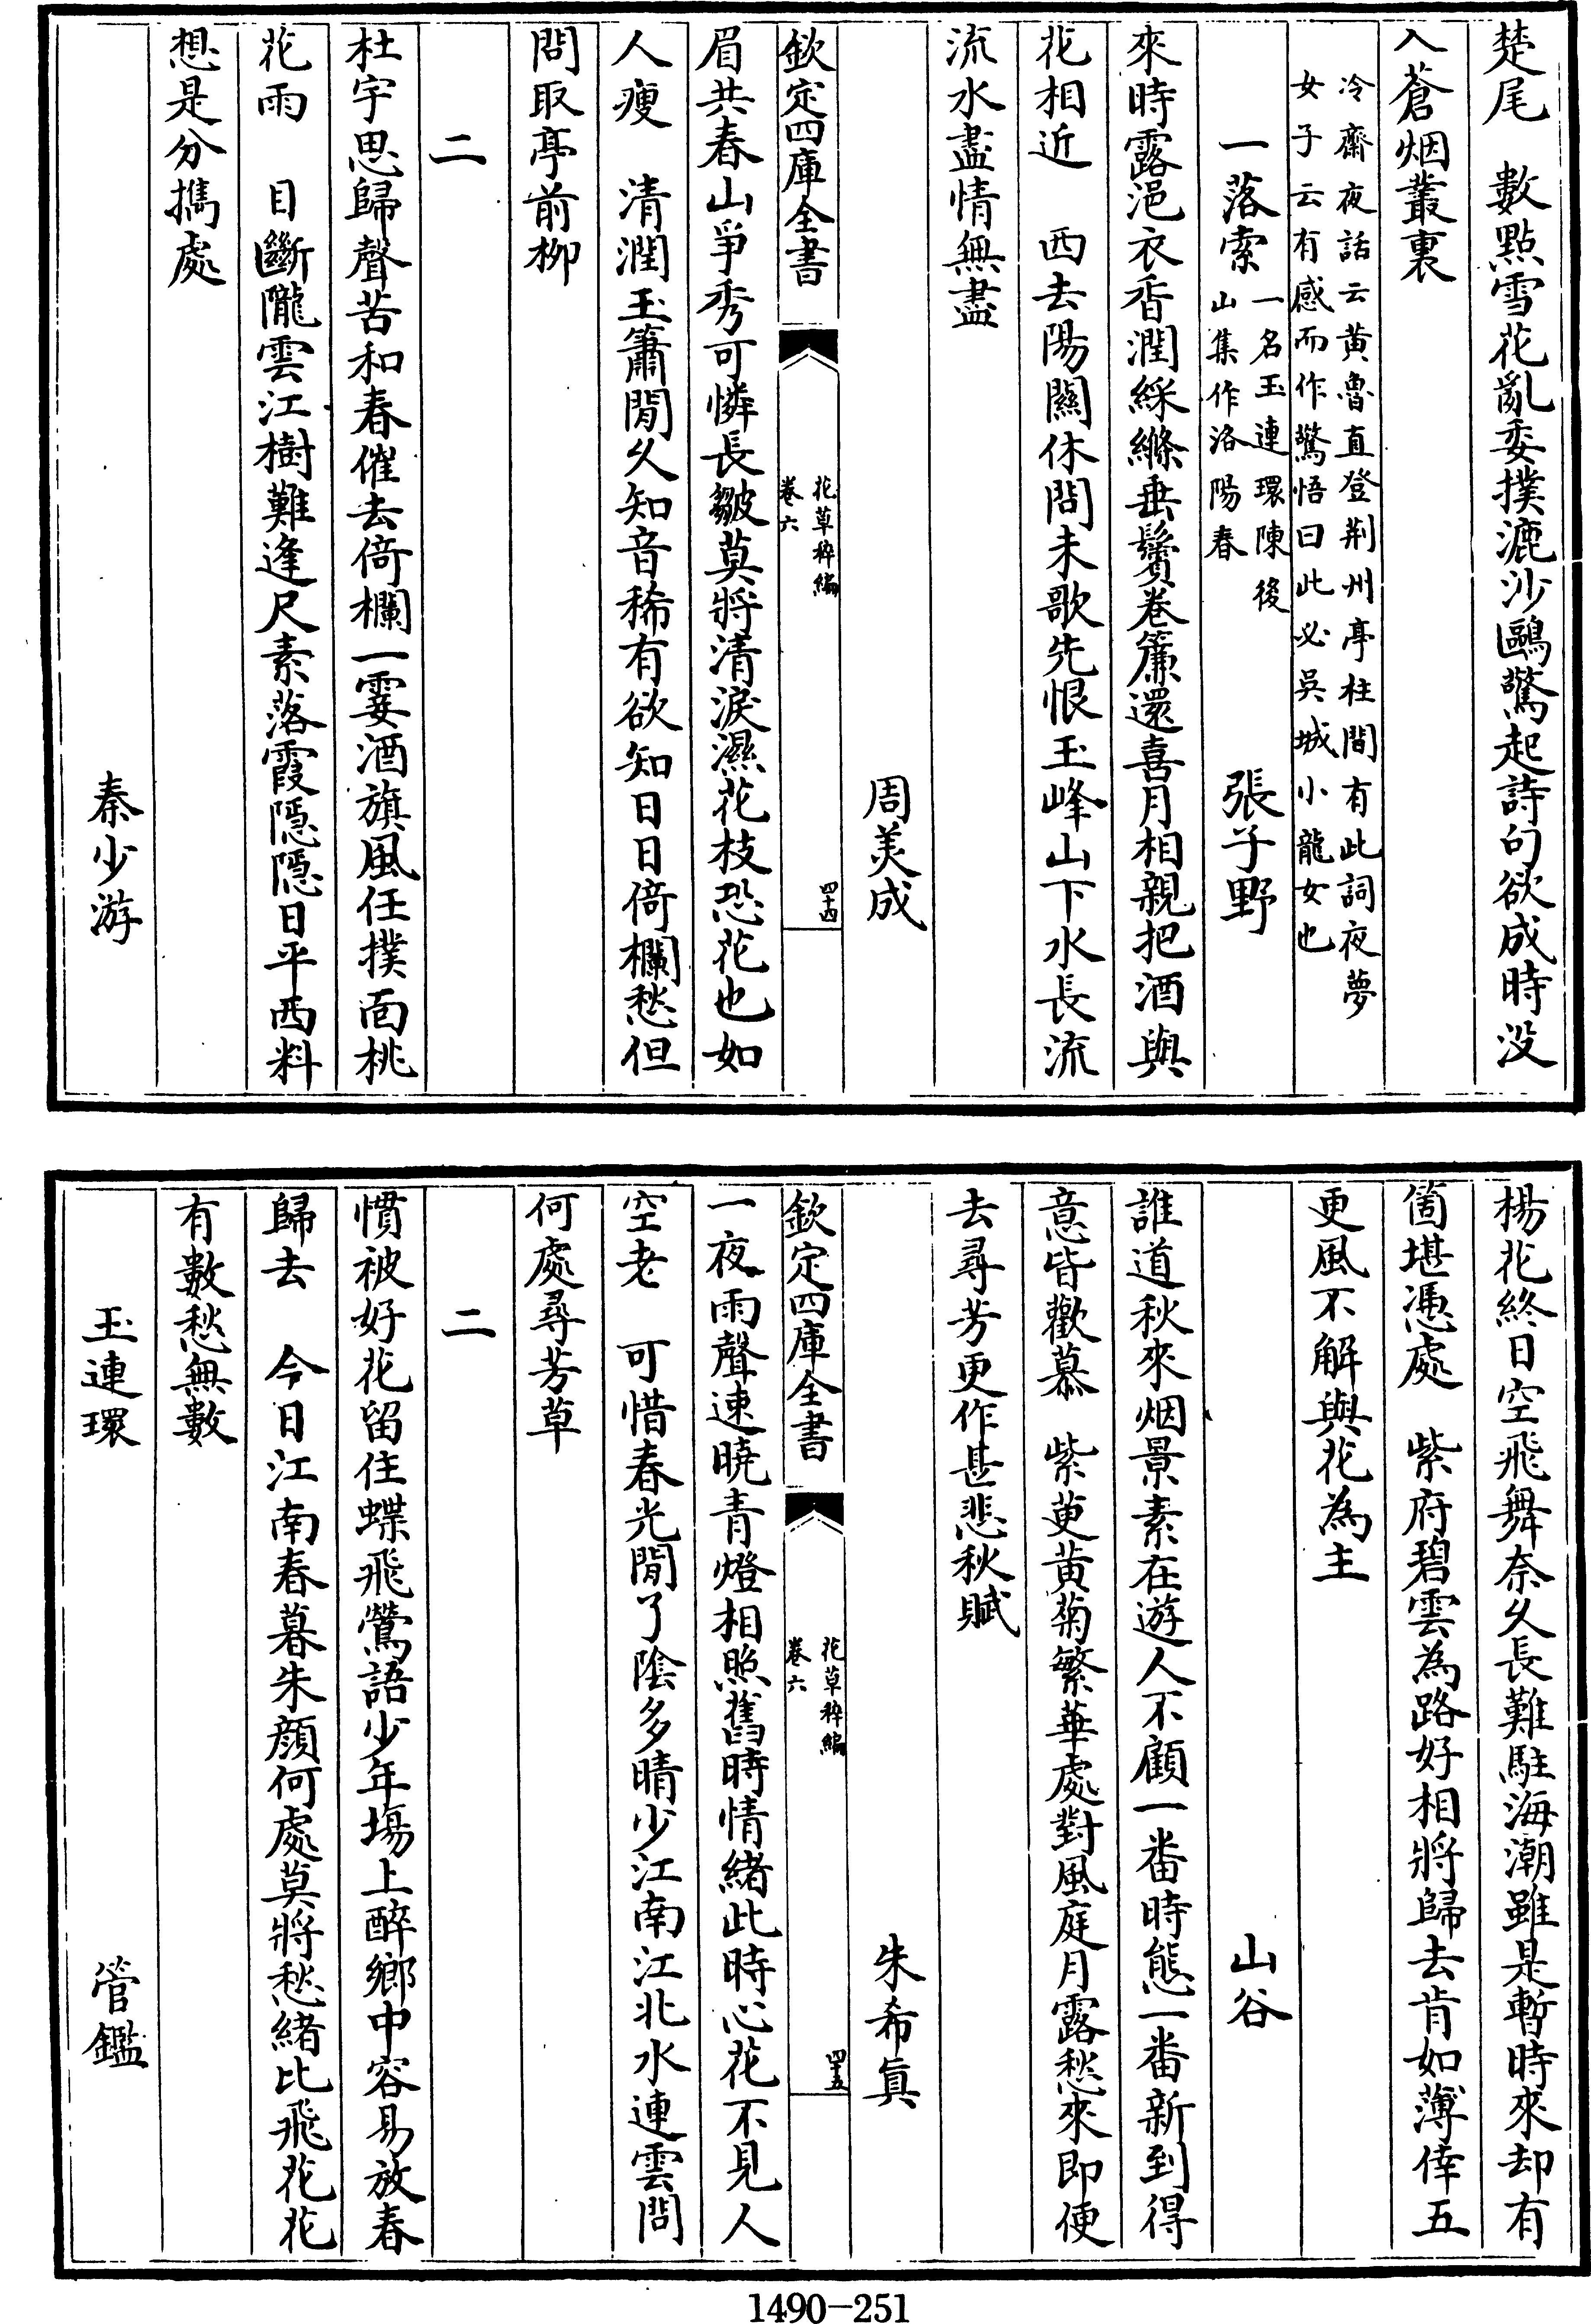 楚尾　數點雪花亂委撲漉沙鷗驚起詩句欲成時没
入蒼烟叢裏
冷齋夜話云黄魯直登荆州亭柱間有此詞夜夢
女子云有感而作驚悟曰此必吳城小龍女也
一落索
一名玉連環陳後
山集作洛陽春
張子野
來時露浥衣香潤綵縧垂鬢卷簾還喜月相親把酒與
花相近　西去陽關休問未歌先恨玉峰山下水長流
流水盡情無盡
周美成
欽定四庫全書
花草稡編
卷六
四十四
眉共春山爭秀可憐長皺莫將清淚濕花枝恐花也如
人瘦　清潤玉簫閒久知音稀有欲知日日倚欄愁但
問取亭前柳
二
杜宇思歸聲苦和春催去倚欄一霎酒旗風任撲面桃
花雨　目斷隴雲江樹難逢尺素落霞隱隱日平西料
想是分攜處
秦少游
楊花終日空飛舞奈久長難駐海潮雖是暫時來却有
箇堪憑處　紫府碧雲為路好相將歸去肯如薄倖五
更風不解與花為主
山谷
誰道秋來烟景素在遊人不顧一番時態一番新到得
意皆歡慕　紫萸黄菊繁華處對風庭月露愁來即便
去尋芳更作甚悲秋賦
朱希真
欽定四庫全書
花草稡編
卷六
四十五
一夜雨聲連曉青燈相照舊時情緒此時心花不見人
空老　可惜春光閒了陰多晴少江南江北水連雲問
何處尋芳草
二
慣被好花留住蝶飛鶯語少年場上醉鄉中容易放春
歸去　今日江南春暮朱顔何處莫將愁緒比飛花花
有數愁無數
玉連環
管鑑
1490-251